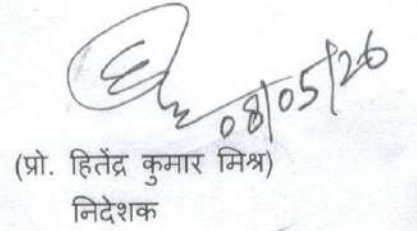 08/05/26
(प्रो. हितेंद्र कुमार मिश्र)
निदेशक